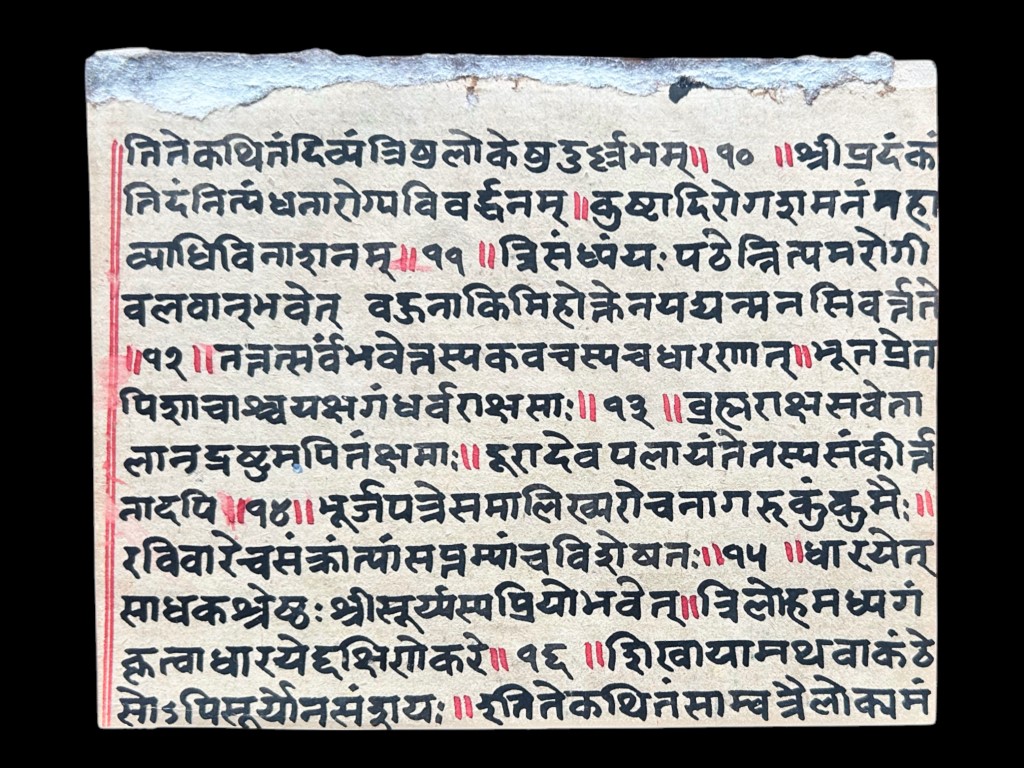 तितेकथितंदिव्यंत्रिषुलोकेषुदुर्ल्लभम्॥ १० ॥श्रीप्रदंकं
तिदंनित्यंधनारोग्यविवर्द्धनम्॥कुष्टादिरोगशमनंमहा
व्याधिविनाशनम्॥ ११ ॥त्रिसंध्यंयः पठेन्नित्यमरोगी
वलवान्भवेत् वहुनाकिमिहोक्तेनयद्यन्मनसिवर्त्तते
॥१२॥तत्तत्सर्वंभवेत्तस्यकवचस्यचधारणात्॥भूतप्रेत
पिशाचाश्चयक्षगंधर्वराक्षसाः॥ १३ ॥व्रह्मराक्षसवेता
लानद्रष्टुमपितंक्षमाः॥दूरादेव पलायंतेतस्यसंकीर्त्त
नादपि॥१४॥भूर्जपत्रेसमालिख्यरोचनागरुकुंकुमैः॥
रविवारेचसंक्रांत्यांसप्तम्यांचविशेषतः॥१५ ॥धारयेत्
साधकश्रेष्ठः श्रीसूर्य्यस्यप्रियोभवेत्॥त्रिलोहमध्यगं
कृत्वाधारयेद्दक्षिणेकरे॥ १६ ॥शिखायामथवाकंठे
सोऽपिसूर्योनसंशयः॥इतितेकथितंसाम्वत्रैलोक्यमं